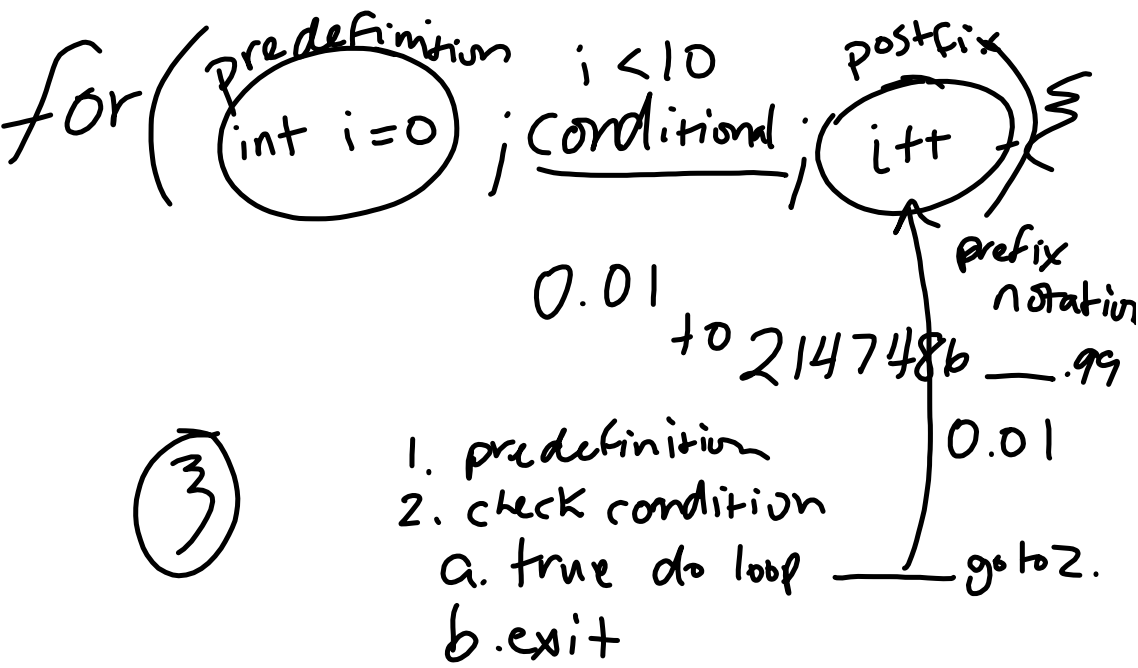 predefinition i < 10 postfix
for ( int i = 0 ; conditional ; i++ ) {
prefix
notation
0.01
to 2147486 ___ .99
0.01
3
1. predefinition
2. check condition
a. true do loop ____ go to 2.
b. exit